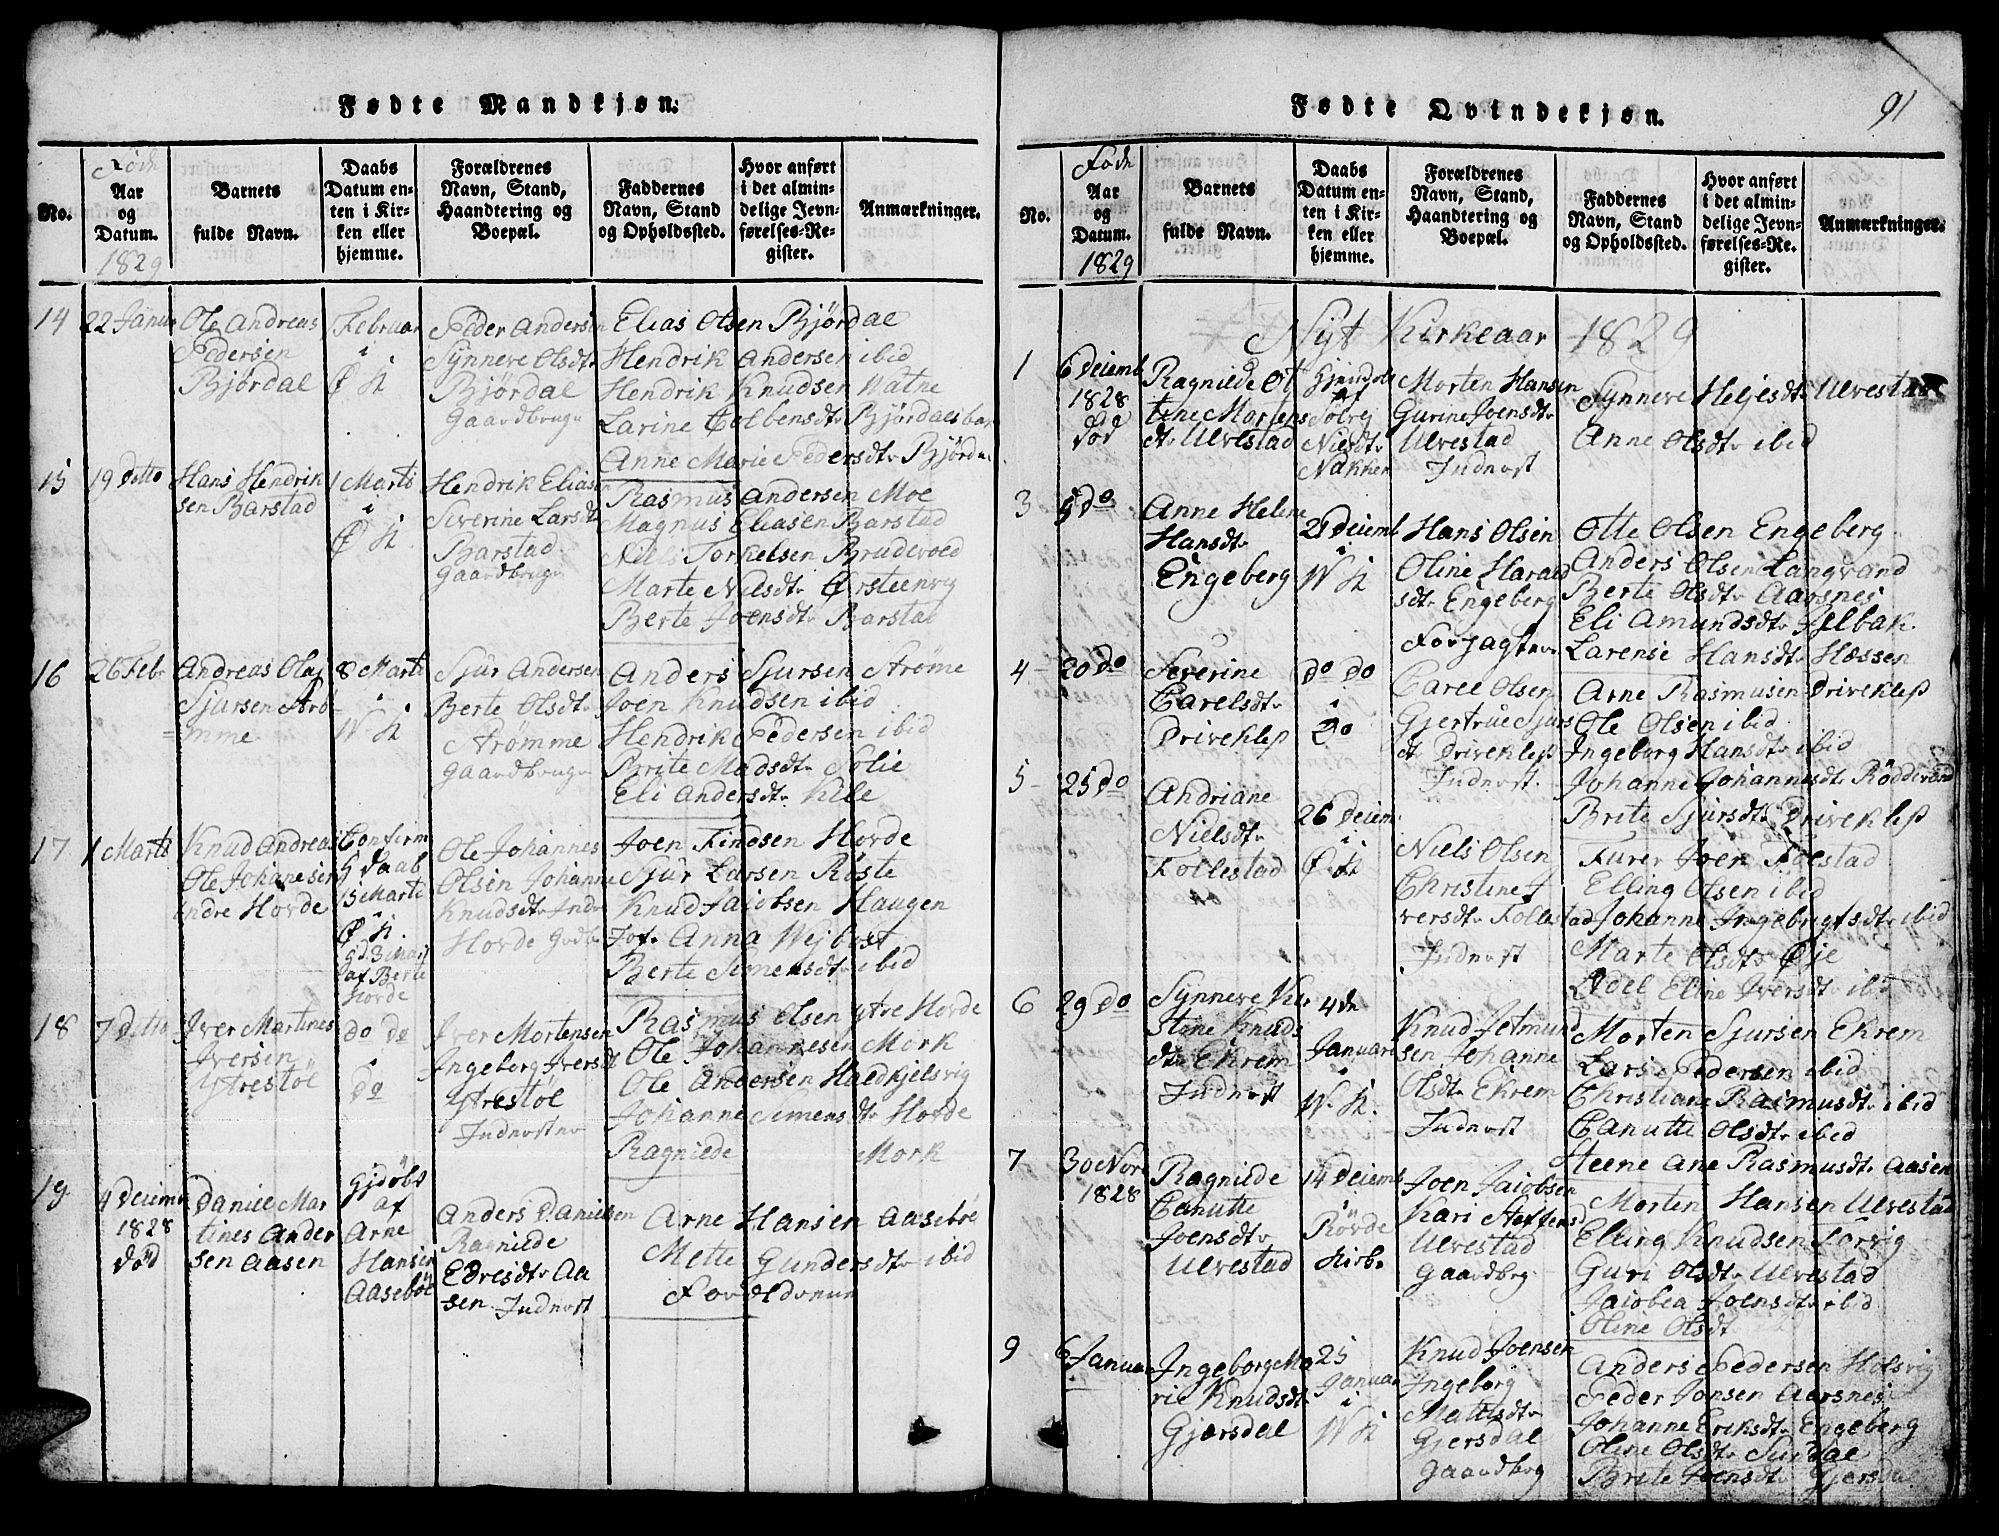 Fødte Mandkjøn.
No.
Født
Aar
og
Datum.
1829
Barnets
fulde Navn.
Daabs
Datum en-
ten i Kir-
ken eller
hjemme.
Forældrenes
Navn, Stand,
Haandtering og
Boepæl.
Faddernes
Navn, Stand
og Opholdssted.
Hvor anført
i det almin-
delige Jevn-
førelses-Re-
gister.
Anmærkninger.
14
22 Janu
Ole Andreas
Pedersen
Bjørdal
Februar
i
Ø K
Peder Andersen
Synneve Olsdtr
Bjørdal
Gaardbruge
Elias Olsen Bjørdal
Hendrik Andersen ibid
Hendrik Knudsen Watne
Larine Colbensdtr Bjørdalsbak
Anne Marie Pedersdtr Bjørda
15
19 Ditto
Hans Hendrik
sen Barstad
1 Marts
i
Ø K
Hendrik Eliasen
Severine Larsdtr
Barstad
Gaardbruge
Rasmus Andersen Moe
Magnus Eliasen Barstad
Niels Torkelsen Brudevoed
Marte Nilsdtr Ørsteenvig
Berte Joensdtr Barstad
16
26 Febr
Andreas Olaj
Sjursen Strø-
mme
8 Marts
i
W K
Sjur Andersen
Berte Olsdtr
Strømme
Gaardbruge
Anders Sjursen Strøme
Joen Knudsen ibid
Hendrik Pedersen ibid
Brite Madsdtr Solie
Eli Andersdtr Kile
17
1 Marts
Knud Andreas
Ole Johanesen
indre Hovde
Confirm
G Daab
15 Marts
Ø K.
gd. 3 Mars
af Berte
Hovde
Ole Johannes
Olsen Johanne
Knudsdtr Indr
Hovde Godb
Joen Findsen Hovde
Sjur Larsen Røste
Knud Jacobsen Haugen
Jof. Anna Wejbust
Berte Simensdtr ibid
18
7 Ditto
Jver Martines
Jversen
Ytrestøl
do do
i
do
Jver Mortensen
Ingeberg Jversdt
Ytrestøl
Indnostne
Rasmus Olsen ytre Hovde
Ole Johannesen Mork
Ole Andersen Haedkjelsvig
Johanne Simensdtr Hovde
Ragnilde Mork
19
4 Deiemb
1828
død
Daniel Mar
tines Ander
sen Aasen
Gjdøbt
af
Arne
Hansen
Aasebøe
Anders Danielsen
Ragnilde
Edresdtr Aa
sen. Indnost
Arne Hansen Aasebøe
Mette Gundersdtr ibid
Forældrene
Fødte Qvindekjøn.
91
No.
Født
Aar
og
Datum.
1829
Barnets
fulde Navn.
Daabs
Datum en-
ten i Kir-
ken eller
hjemme.
Forældrenes
Navn, Stand,
Haandtering og
Boepæl.
Faddernes
Navn, Stand
og Opholdssted.
Hvor anført
i det almin-
delige Jevn-
førelses-Re-
gister.
Anmærkninger.
Nyt Kirkeaar 1829
1
6 Deiemb
1828
død
Ragnilde Ol
tine Mortens
dtr Ulvestad
Gjendøb
af
Solvej
Nielsdtr
Nakken
Morten Hansen
Gurine Joensdtr
Ulvestad
Indnost
Synneve Heljesdtr Ulvestad
Anne Olsdtr ibid
3
9 do
Anne Helene
Hansdtr
Engeberg
21 Deiemb
i
W K
Hans Olsen
Oline Harald
sdtr Engeberg
Forjagtner
Otte Olsen Engeberg
Anders Olsen Langvand
Berte Olsdtr Aarsnes
Eli Amundsdtr Jelbak
Larense Hansdtr Hæssen
4
20 do
Severine
Carelsdtr
Driveklep
do do
i
do
Carel Olsen
Gjertrue Sjurs
dt Driveklep
Indnost.
Arne Rasmusen Driveklep
Ole Olsen ibid
Ingeborg Hansdtr ibid
Johanne Johannesdtr Røddevand
Brite Sjursdtr Driveklep
5
25 do
Andriane
Nielsdtr
Follestad
26 Deiem
i
Ø K
Niels Olsen
Christine J
versdtr Follestad
Indnost
Furer Joen Foestad
Elling Olsen ibid
Johanne Ingebrigtsdtr ibid
Marte Olsdtr Øje
Adel Eline Jversdtr ibid
6
29 do
Synneve Kir
stine Knuds
dtr Ekrem
Indnost
4 de
Januari
i
W. K.
Knud Jetmund
sen Johanne
Olsdtr Ekrem
Indnost
Morten Sjursen Ekrem
Lars Pedersen ibid
Christiane Rasmusdtr ibid
Canutte Olsdtr ibid
Steene Ane Rasmusdtr Aasen
7
30 Nov
1828
Ragnilde
Canutte
Joensdtr
Ulvestad
14 Deiemb
Røvde
Kirke
Joen Jaiobsen
Kari Steffens
Ulvestad
Gaardbrg
Morten Hansen Ulvestad
Elling Knudsen Torvig
Guri Olsdtr Ulvestad
Jaiobea Joensdtr ibid
Oline Olsdt
9
6 Januar
Ingeborg Ma
rie Knudsdt
Gjærsdal
25
Januar
i
W K
Knud Joensen
Ingeborg
Mattisdtr
Gjersdal
Gaardbrg
Anders Pedersen Holsvig
Peder Jonsen Aarsnes
Johanne Eriksdtr Engeberg
Oline Olsdtr Surdal
Brite Joensdtr Gjersdal